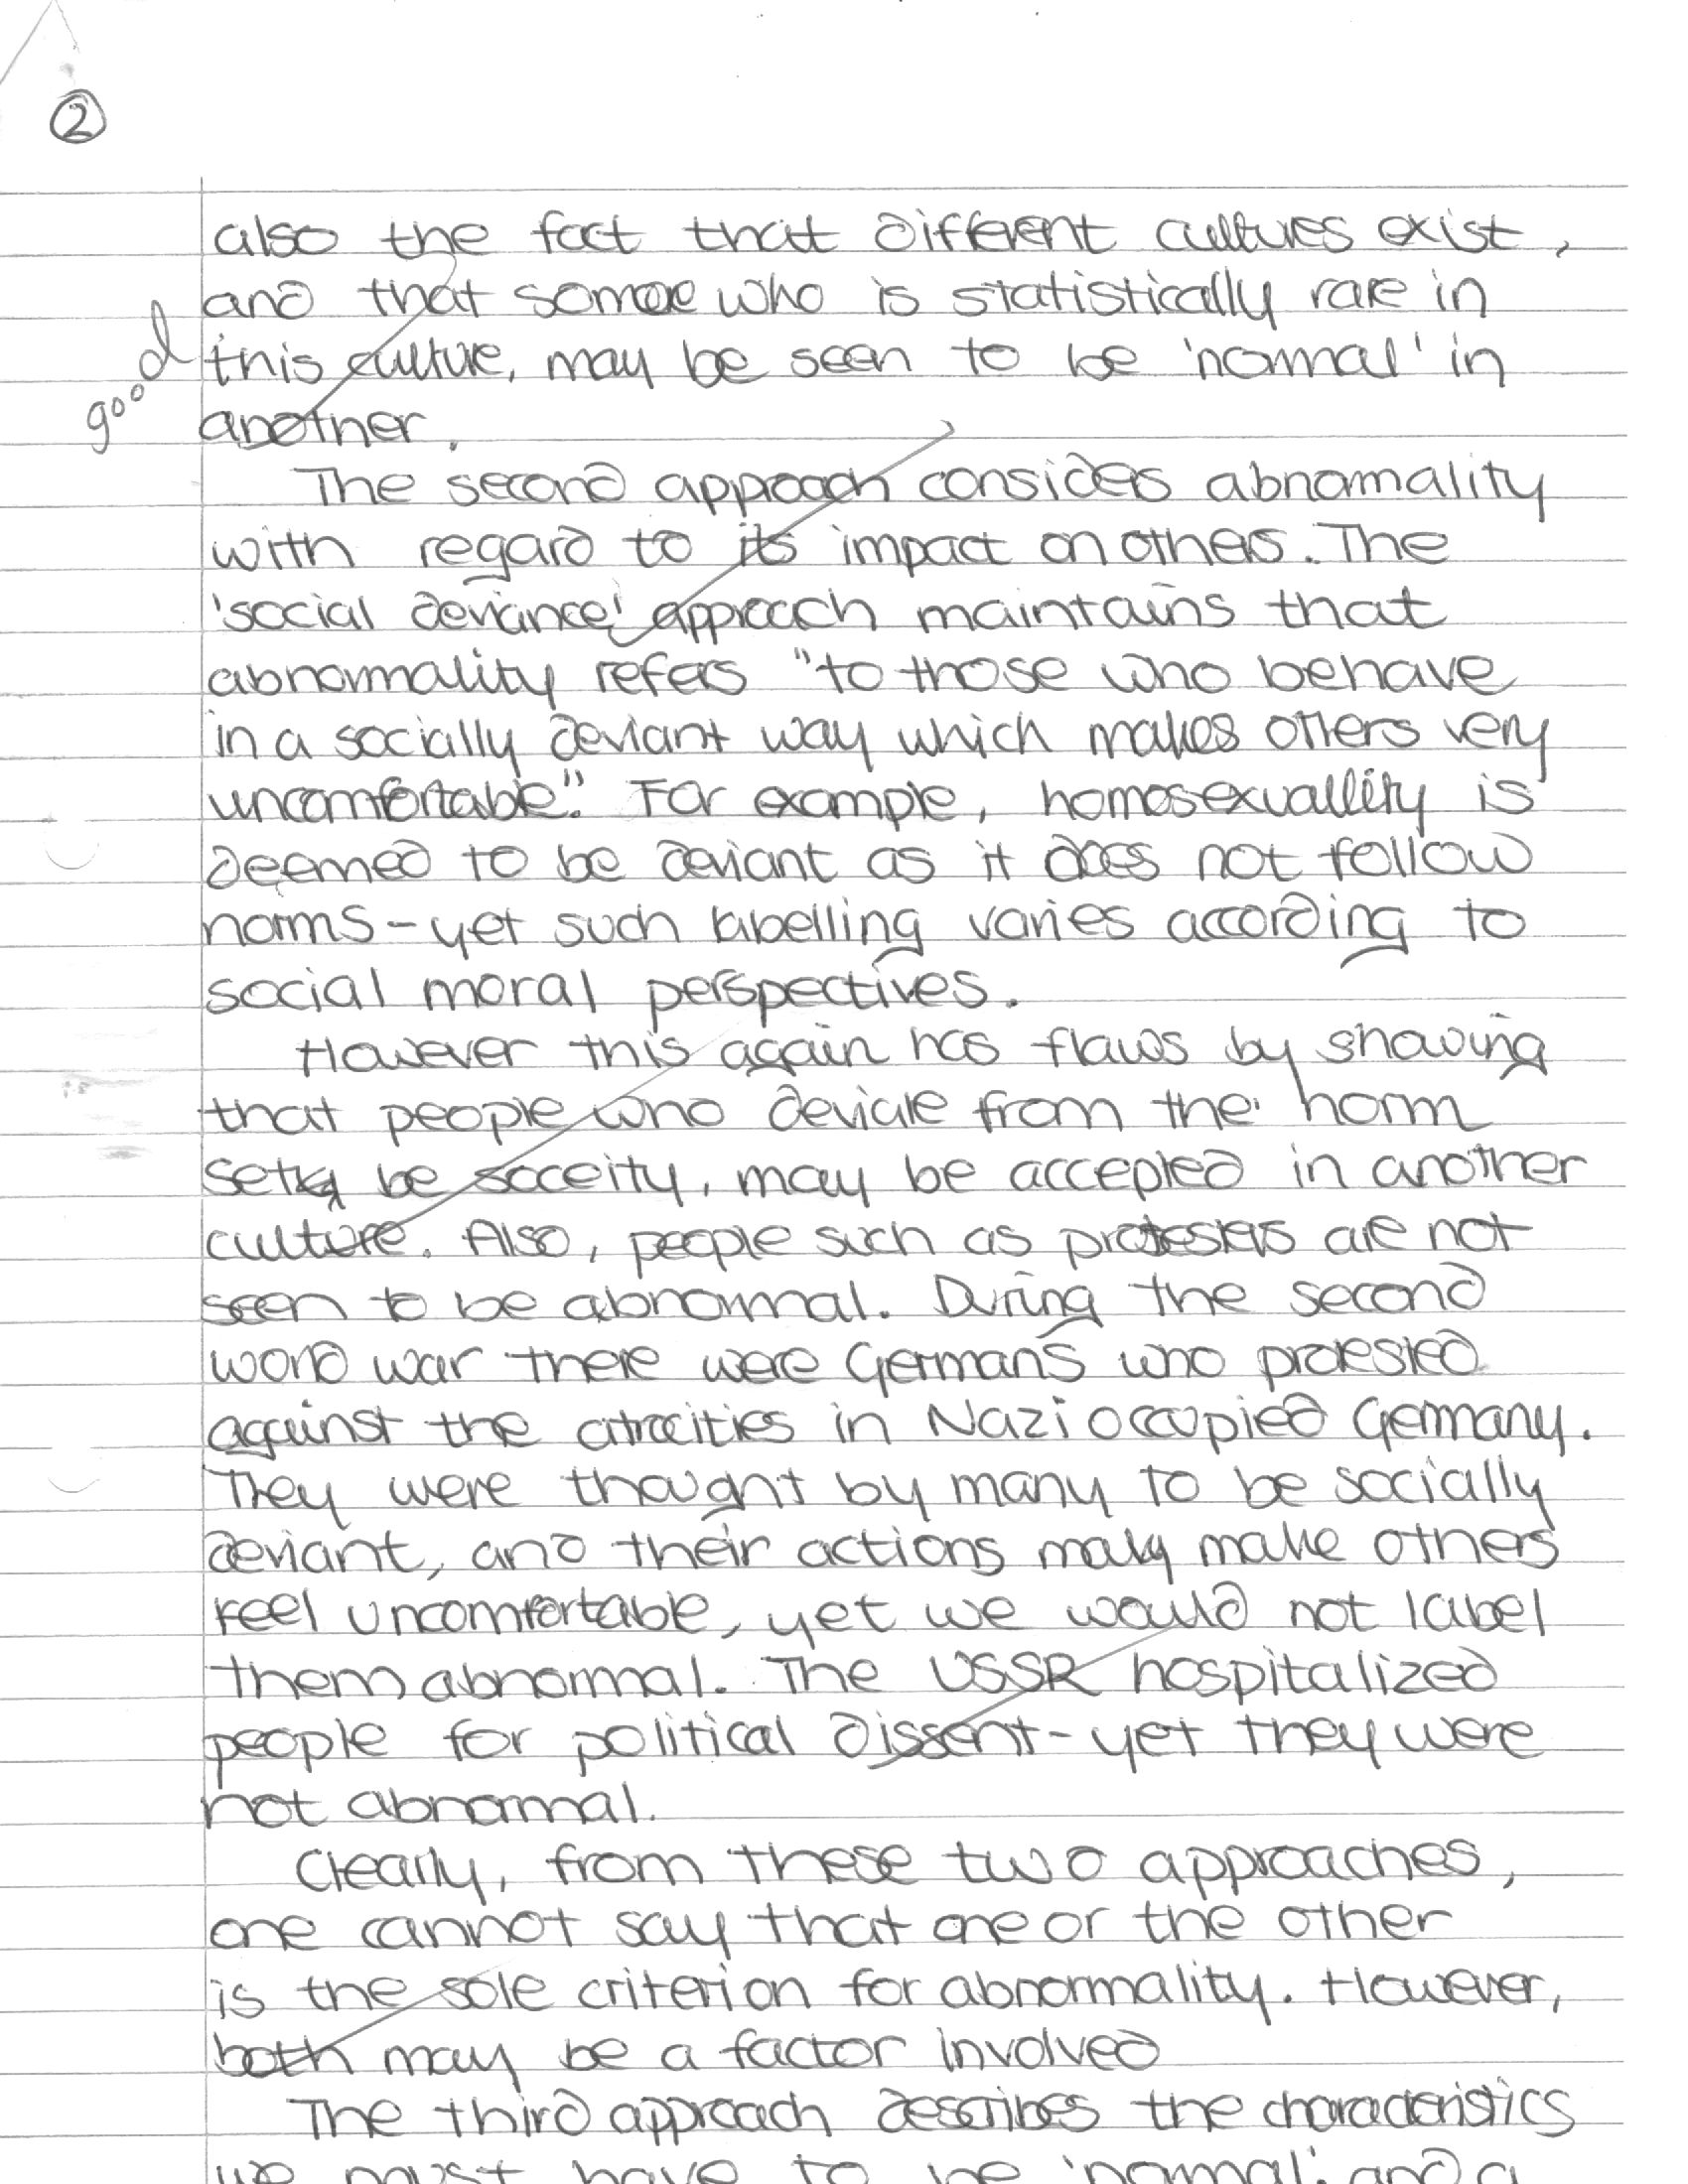 ②
also the fact that different cultures exist,
and that somoe who is statistically rare in
good
this culture, may be seen to be 'normal' in
another.
The second approach considers abnormality
with regard to its impact on others. The
'social deviance' approach maintains that
abnormality refers "to those who behave
in a socially deviant way which makes others very
uncomfortable". For example, homosexuallity is
deemed to be deviant as it does not follow
norms - yet such labelling varies according to
social moral perspectives.
However this again has flaws by showing
that people who deviate from the norm
set be soceity, may be accepted in another
culture. Also, people such as protesters are not
seen to be abnormal. During the second
world war there were Germans who protested
against the atrocities in Nazi occupied Germany.
They were thought by many to be socially
deviant, and their actions may make others
feel uncomfortable, yet we would not label
them abnormal. The USSR hospitalized
people for political dissent - yet they were
not abnormal.
Clearly, from these two approaches,
one cannot say that one or the other
is the sole criterion for abnormality. However,
both may be a factor involved
The third approach describes the characteristics
we must have to be 'normal', and a